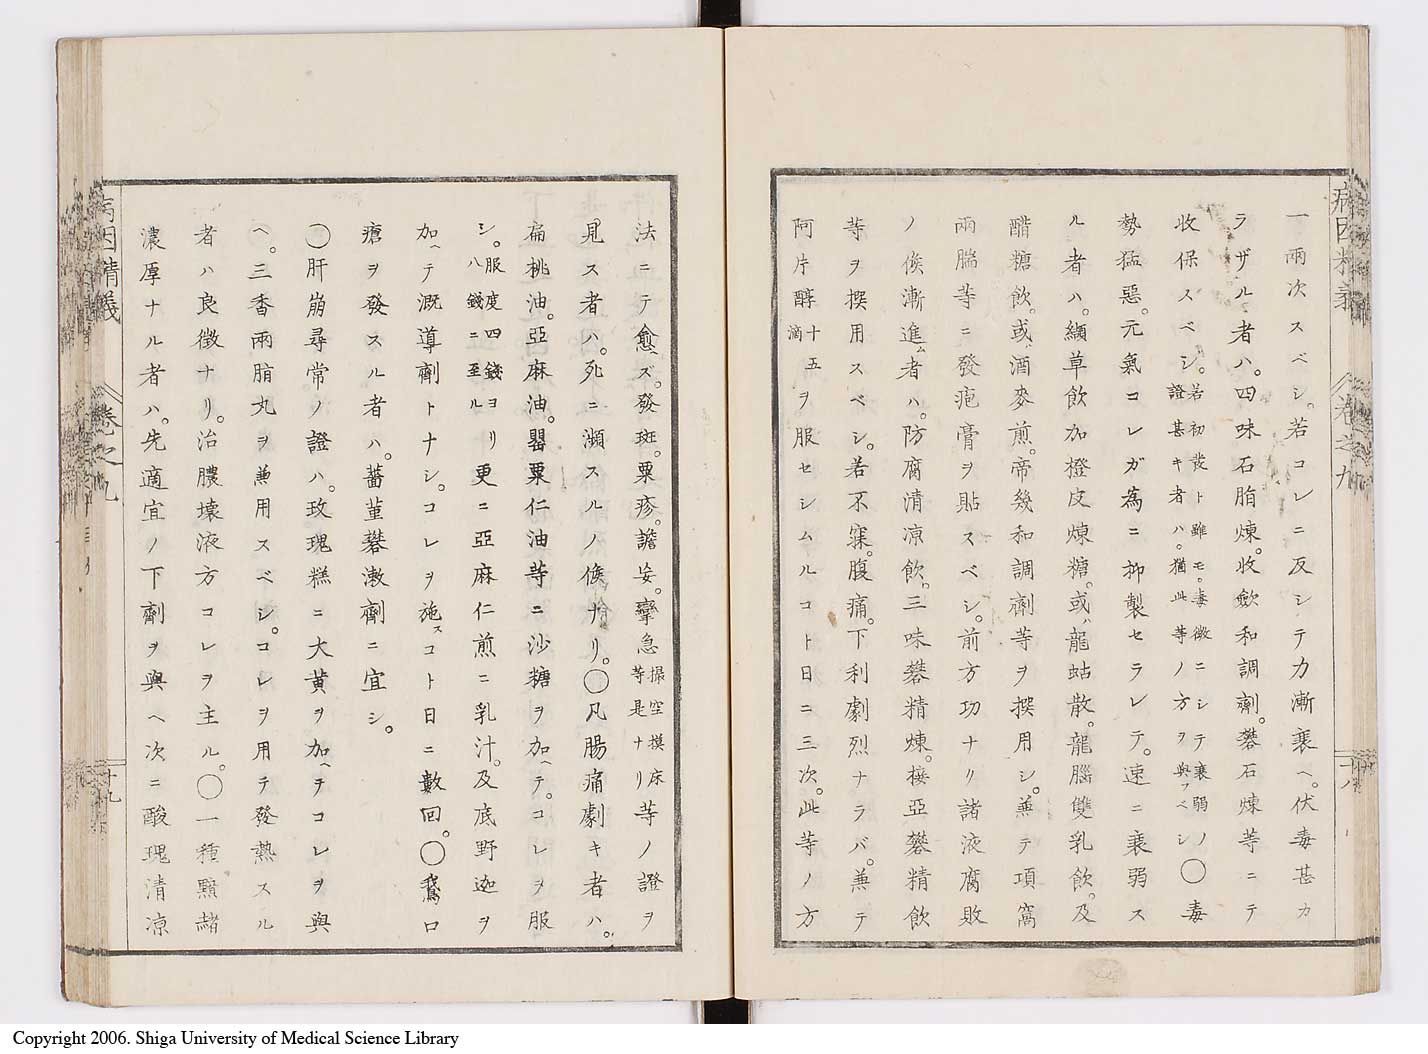 病因精義
卷之九
一兩次スベシ。若コレニ反シテ力漸衰ヘ。伏毒甚カ
ラザル者ハ。四味石脂煉。收斂和調劑。礬石煉等ニテ
收保スベシ。若初發ト雖モ。毒微ニシテ衰弱ノ證甚キ者ハ。猶此等ノ方ヲ與フベシ◯毒
勢猛惡。元氣コレガ為ニ抑製セラレテ。速ニ衰弱ス
ル者ハ。纈草飲加橙皮煉糖。或ハ龍蛄散。龍腦雙乳飲。及
醋糖飲。或ハ酒麥煎。帝幾和調劑等ヲ撰用シ。兼テ項窩
兩腨等ニ發疱膏ヲ貼スベシ。前方功ナリ諸液腐敗
ノ候漸進ム者ハ。防腐清凉飲。三味礬精煉。接亞礬精飲
等ヲ撰用スベシ。若不寐。腹痛。下利劇烈ナラバ。兼テ
阿片醇十五滴ヲ服セシムルコト日ニ三次。此等ノ方
法ニテ愈ズ。發斑。粟疹。譫妄。攣急撮空摸床等是ナリ等ノ證ヲ
見ス者ハ。死ニ瀕スルノ候ナリ。◯凡腸痛劇キ者ハ。
扁桃油。亞麻油。罌粟仁油等ニ沙糖ヲ加ヘテ。コレヲ服
シ。服度四錢ヨリ八錢ニ至ル更ニ亞麻仁煎ニ乳汁。及底野迦ヲ
加ヘテ溉導劑トナシ。コレヲ施スコト日ニ數回。◯鵞口
瘡ヲ發スル者ハ。薔菫礬漱劑ニ宜シ。
◯肝崩尋常ノ證ハ。玫瑰糕ニ大黄ヲ加ヘテコレヲ與
ヘ。三香兩脂丸ヲ兼用スベシ。コレヲ用テ發熱スル
者ハ良徵ナリ。治膿壊液方コレヲ主ル。◯一種黯緒
濃厚ナル者ハ。先適宜ノ下劑ヲ與ヘ次ニ酸瑰清凉
病因精義
卷之九
十九